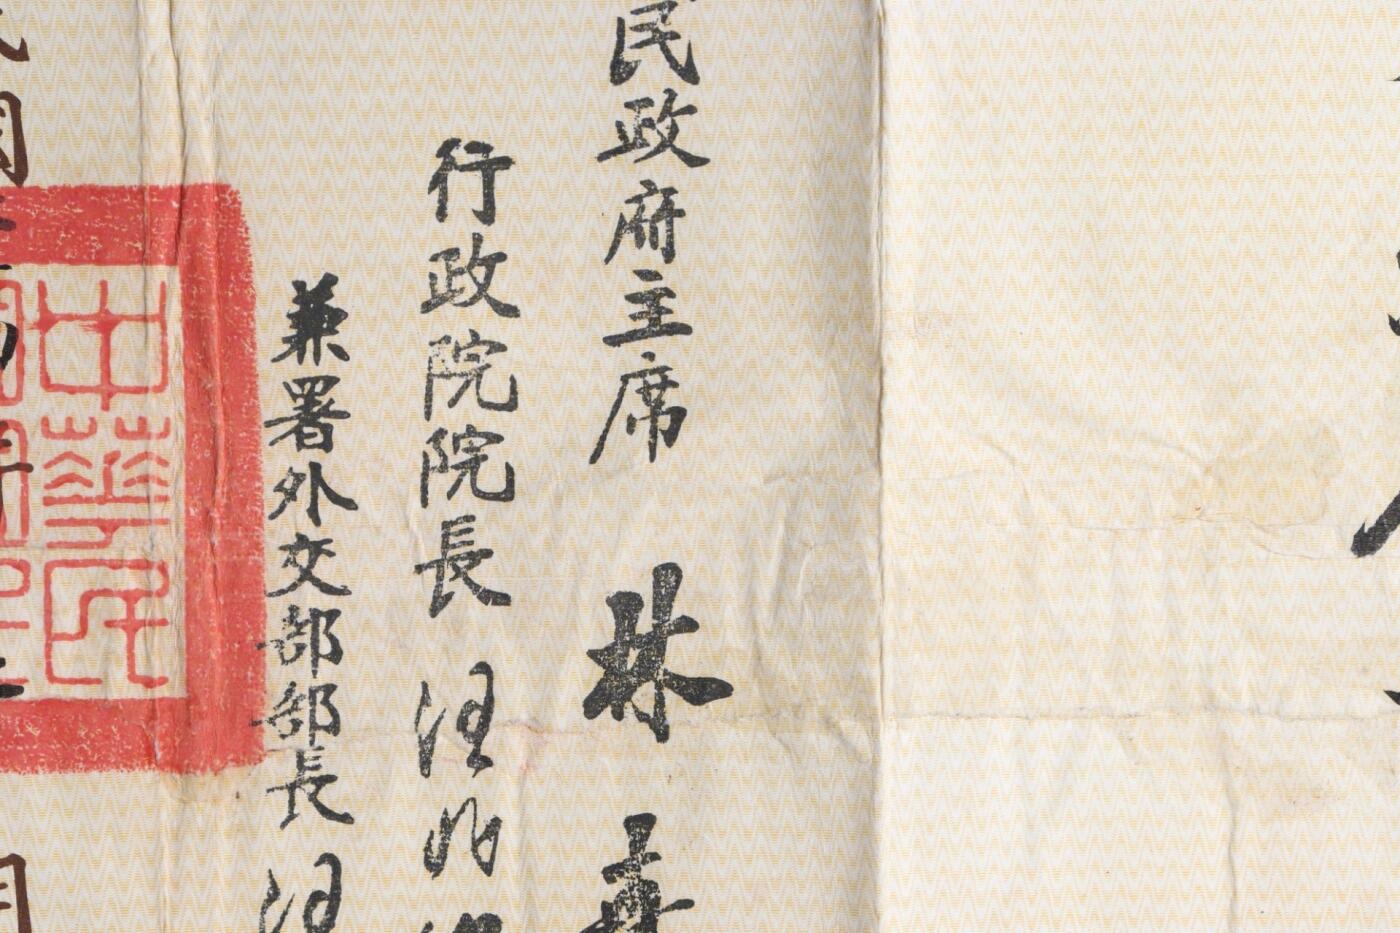 民政府主席 林森
行政院院長 汪兆
兼署外交部部長 汪
中華民